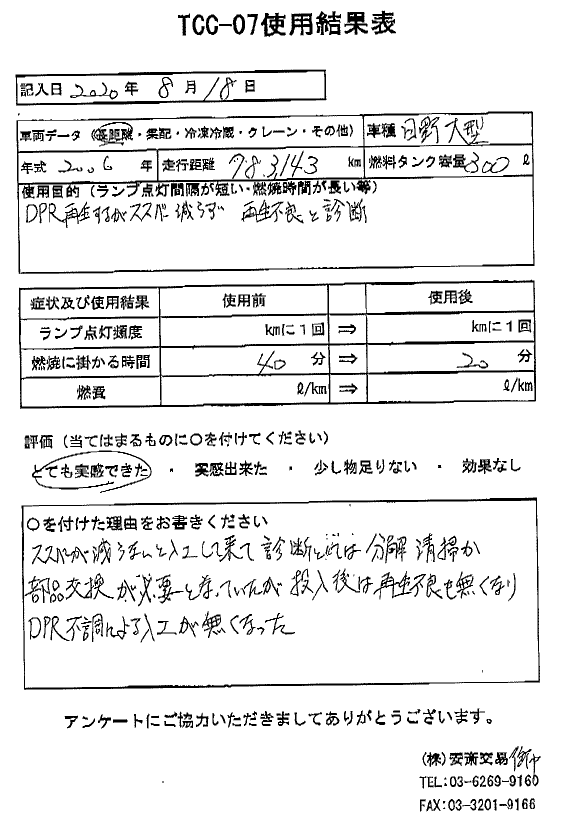 TCC-07使用結果表
記入日 2020 年 8 月 18 日
車両データ（長距離・集配・冷凍冷蔵・クレーン・その他） 車種 日野大型
年式 2006 年 走行距離 783,143 km 燃料タンク容量 300 ℓ
使用目的（ランプ点灯間隔が短い・燃焼時間が長い等）
DPR再生するがススが減らず 再生不良と診断
症状及び使用結果 使用前 使用後
ランプ点灯頻度 kmに1回 ⇒ kmに1回
燃焼に掛かる時間 40 分 ⇒ 20 分
燃費 ℓ/km ⇒ ℓ/km
評価（当てはまるものに○を付けてください）
とても実感できた ・ 実感出来た ・ 少し物足りない ・ 効果なし
○を付けた理由をお書きください
ススが減らないと入工して来て診断では分解清掃か
部品交換が必要となっていたが投入後は再生不良も無くなり
DPR不調による入工が無くなった
アンケートにご協力いただきましてありがとうございます。
（株）安斎交易
TEL:03-6269-9160
FAX:03-3201-9166